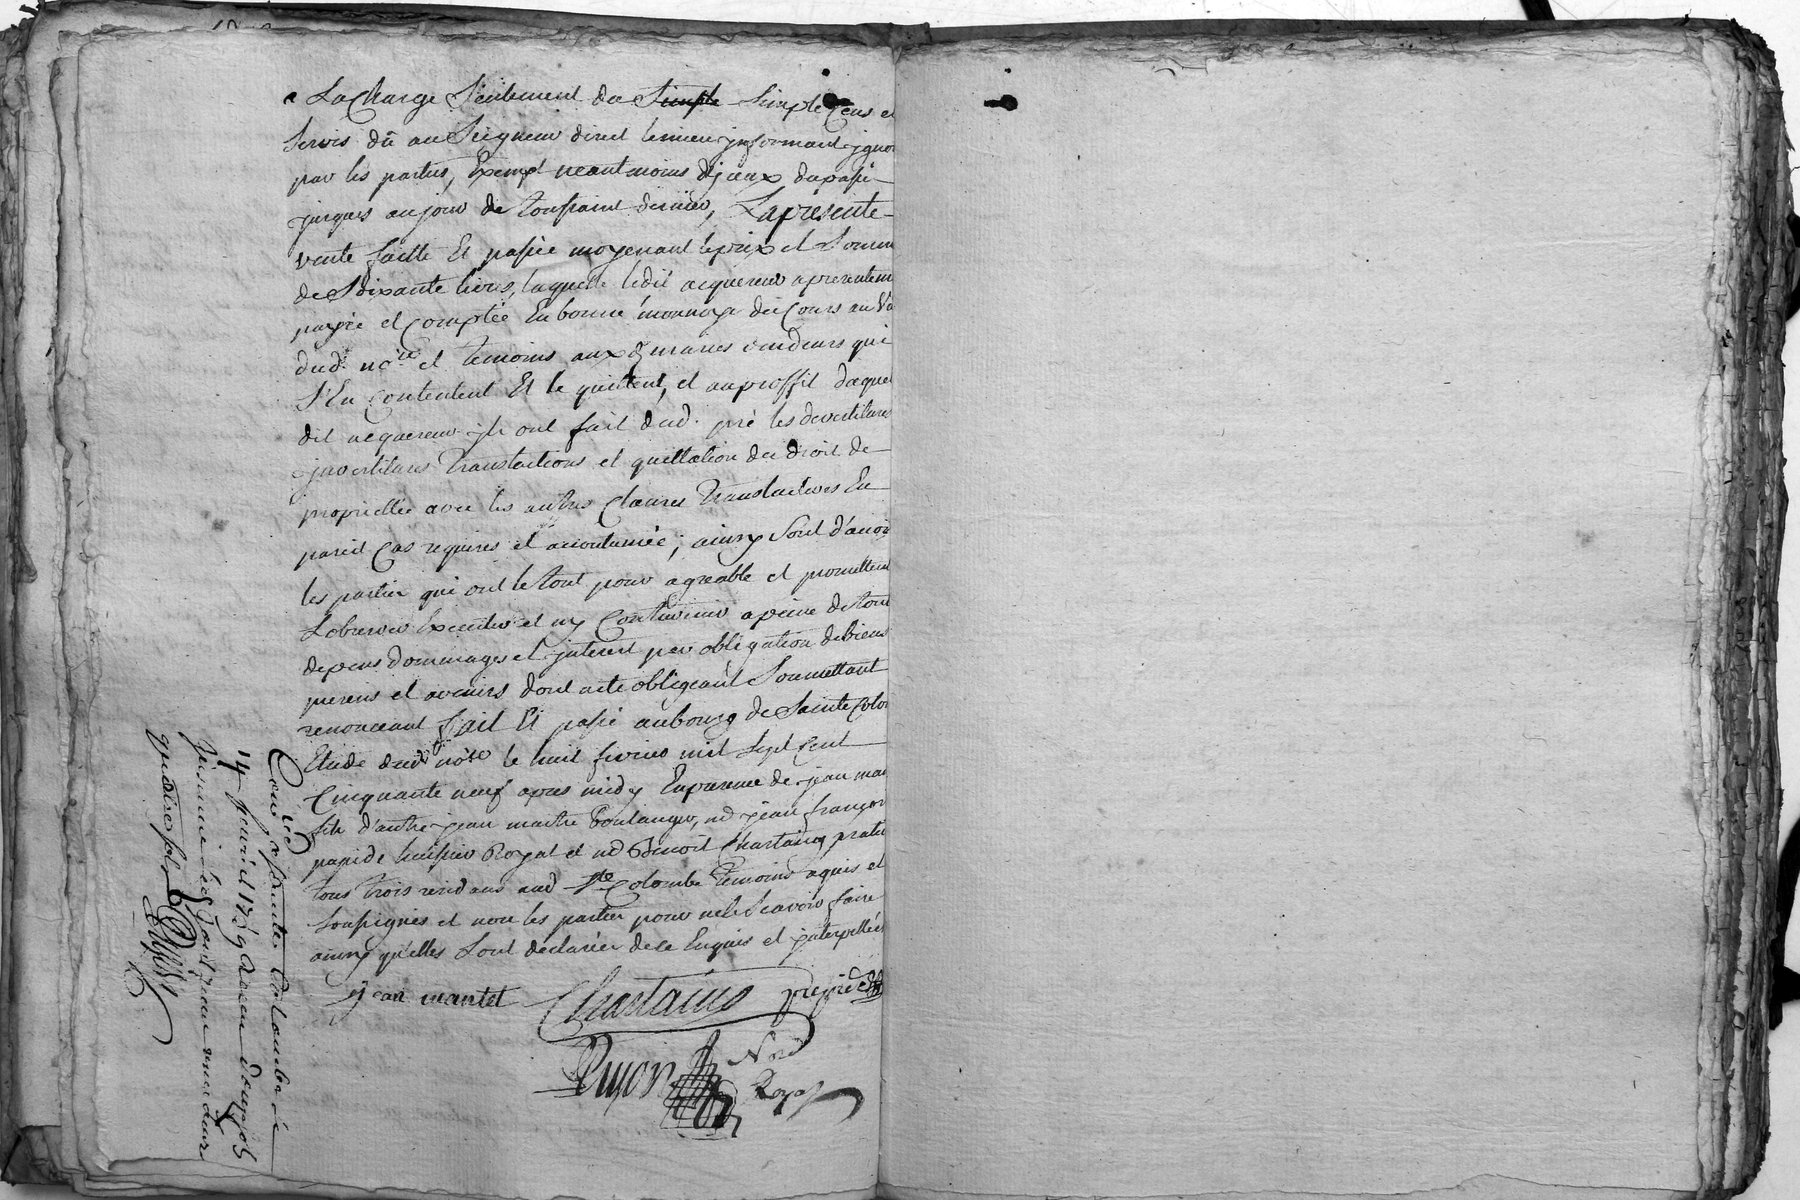 a La Charge Seulement du Simple Simple Cens et
Servis dû au Seigneur direct le mieux jnformant jgnor
par les parties, Exempt neantmoins d'jceux du passé
jusques au jour de toussaint dernier, La présente
vente faitte Et passée moyenant le prix et Somme
de Soixante livres, laquelle ledit acquereur a presentem
payée et Comptée En bonne monnoye du Cours au Vû
dud. nore. et temoins aux mariés vendeurs qui
S'En Contentent Et le quittent, et au proffit duquel
dit acquereur jls ont fait dud. pré les devestitures
jnvestitures Translations et quittation du droit de
proprietée avec les autres Clauses Translatives En
pareil Cas requises et accoutumée; ainsy Sont d'accor
les parties qui ont le tout pour agreable et promettent
Lobserver Executer et ny Contrevenir a peine de tous
depens dommages et jnterest par obligation de biens
presens et avenirs dont acte obligeant Soumettant
renonceant fait Et passé au bourg de Sainte Colom
Etude dud. nore le huit fevrier mil Sept Cent
Cinquante neuf apres midy En presence de jean man
fils d'autre jean maitre Boulanger, me jean françois
papide huissier Royal et me Benoit Chartaing prati
tous trois residans aud. Ste Colombe temoins aquis et
Soussignés et non les parties pour ne le Scavoir faire
ainsy qu'elles Sont declarées de ce Enquis et jnterpellées
jean mantet Chartaing papide
Dupon Nore
Royal
Con.lé a Sainte Colombe le
14 fevrier 1759 Receu douze sols